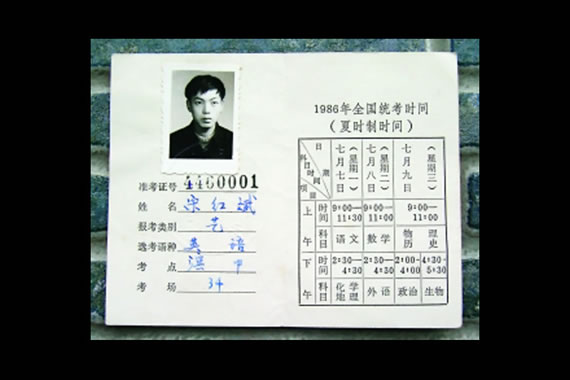 准考证号 4460001
姓名 宋红斌
报考类别 艺
选考语种 英语
考点
考场 34
1986年全国统考时间
(夏时制时间)
日期 科目时间 项目 七月七日(星期一) 七月八日(星期二) 七月九日(星期三)
上午 时间 9:00—11:30 9:00—11:00 9:00—11:00
科目 语文 数学 物理 历史
下午 时间 2:30—4:30 2:30—4:30 2:00—4:00 4:30—5:30
科目 化学 地理 外语 政治 生物